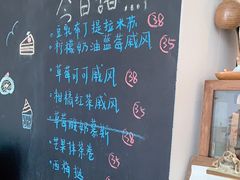 今日甜
豆乳布丁提拉米苏 38
柠檬奶油蓝莓戚风 35
草莓可可戚风 38
柑橘红茶戚风 35
草莓酸奶慕斯 38
芒果抹茶卷 35
西梅挞